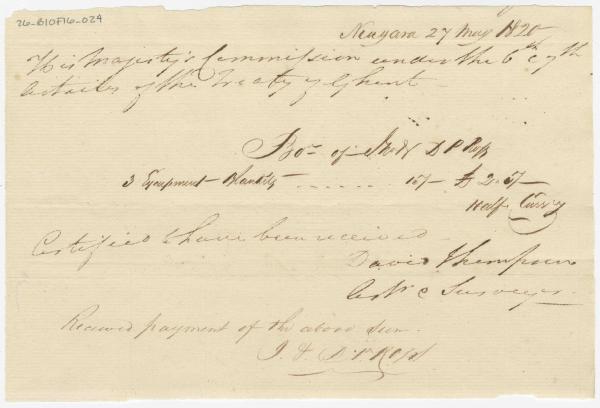 26-B10F16-024
Niagara 27 May 1820
His Majesty's Commission under the 6th & 7th
Articles of the Treaty of Ghent
Bot of J & D P Ross
3 Equipment Blankets ...... 15/- £ 2..5/-
Half Curry
Certified to have been received
David Thompson
Astr & Surveyor.
Received payment of the above sum.
J. & D. P. Ross